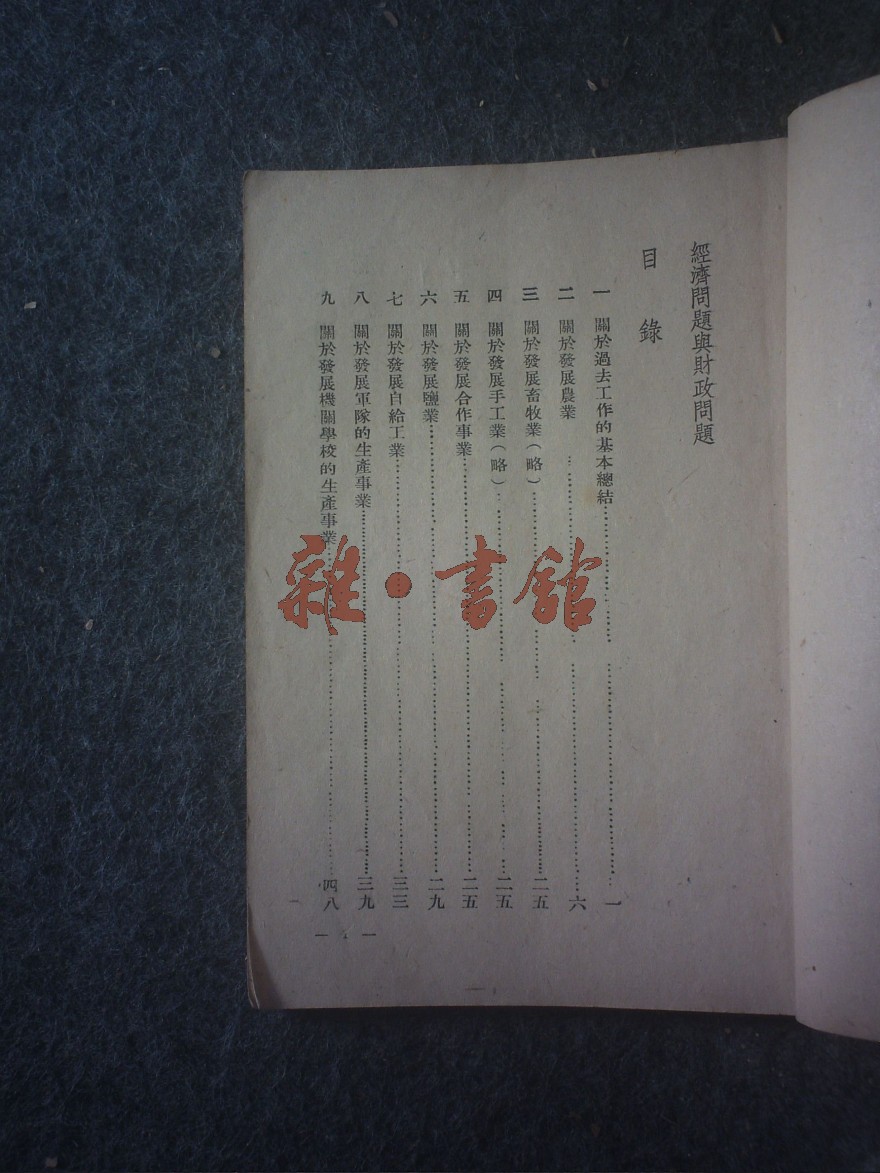 經濟問題與財政問題
目錄
一 關於過去工作的基本總結 一
二 關於發展農業 六
三 關於發展畜牧業（略） 二五
四 關於發展手工業（略） 二五
五 關於發展合作事業 二五
六 關於發展鹽業 二九
七 關於發展自給工業 三三
八 關於發展軍隊的生產事業 三九
九 關於發展機關學校的生產事業 四八
雜·書館